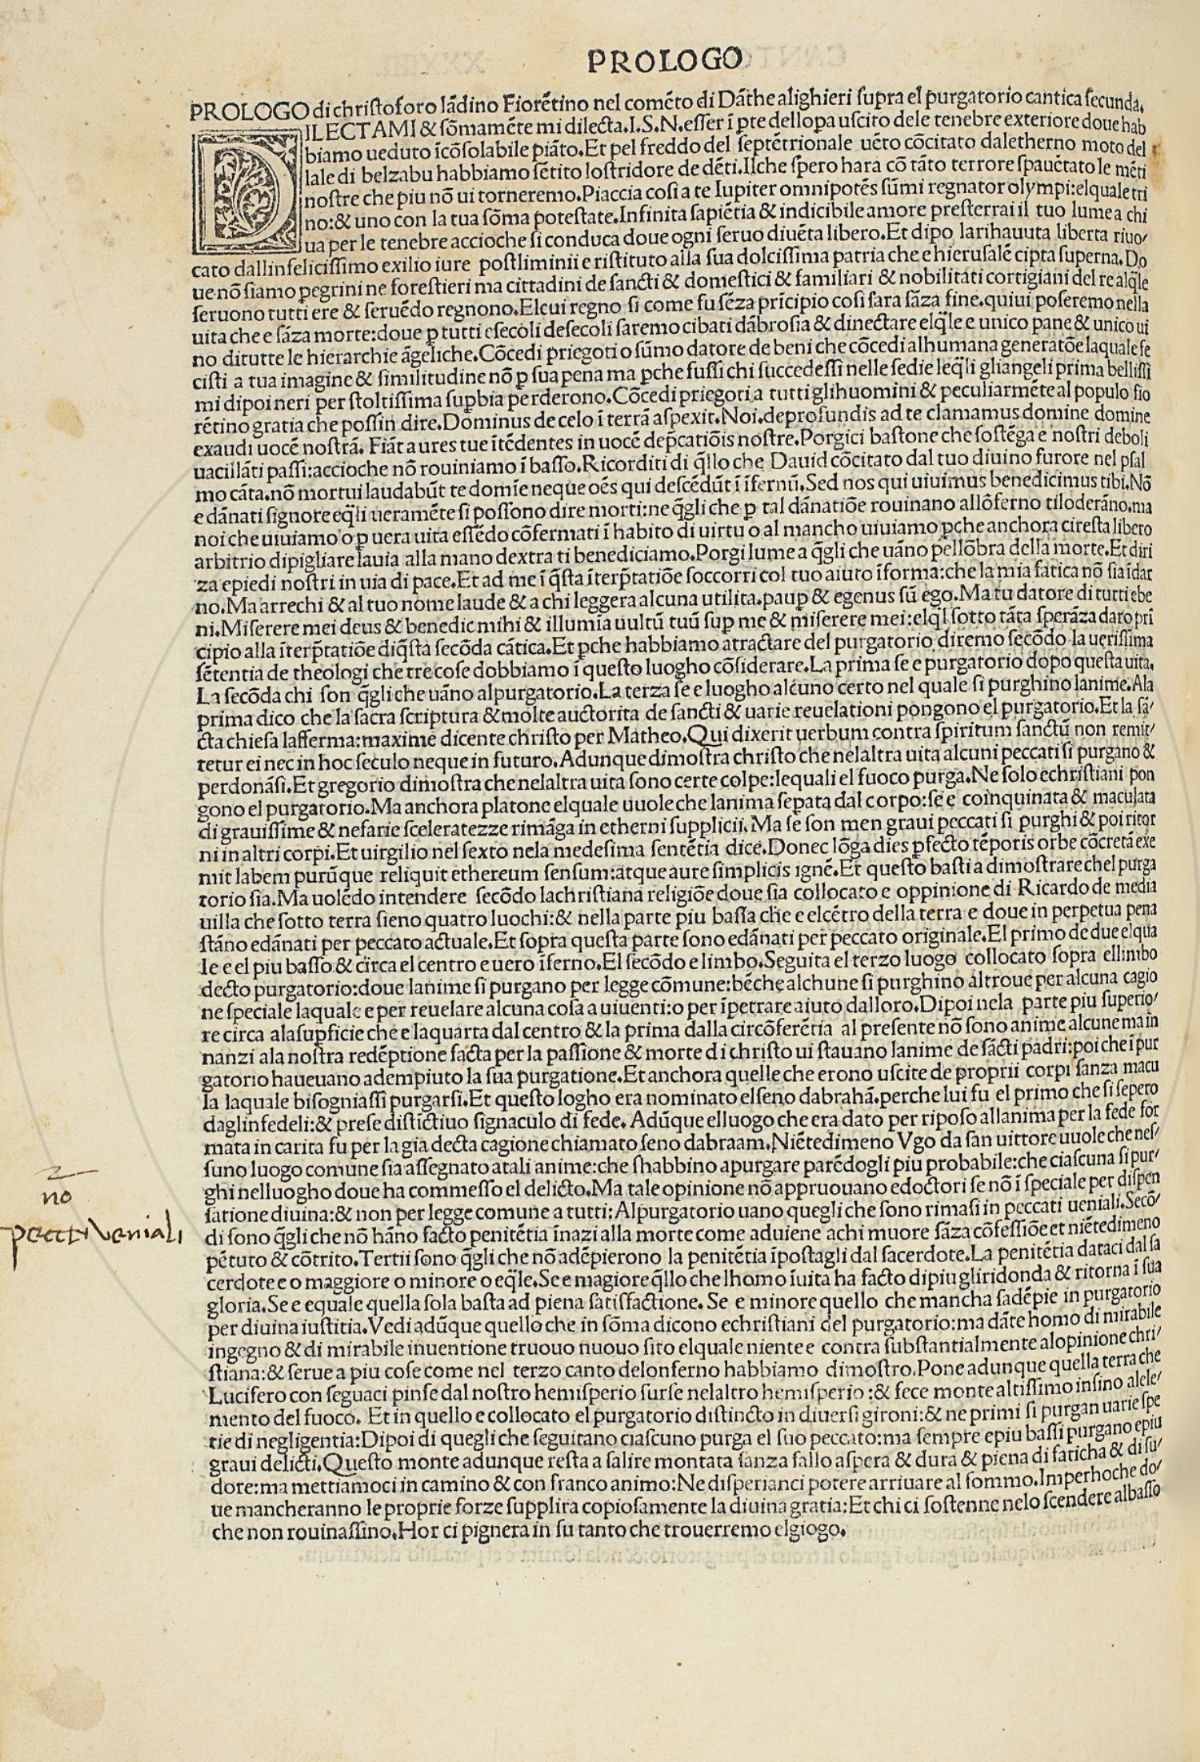 PROLOGO
PROLOGO di christoforo lādino Fiorētino nel comēto di Dāthe alighieri supra el purgatorio cantica secunda.
DILECTAMI & sōmamēte mi dilecta.I.S.N.esser ī pte dellopa uscito dele tenebre exteriore doue hab
biamo ueduto īcōsolabile piāto.Et pel freddo del septētrionale uēto cōcitato daletherno moto del
lale di belzabu habbiamo sētito lostridore de dēti.Ilche spero hara cō tāto terrore spauētato le mēti
nostre che piu nō ui torneremo.Piaccia cosi a te Iupiter omnipotēs sūmi regnator olympi:elquale tri
no:& uno con la tua sōma potestate.Infinita sapiētia & indicibile amore presterrai il tuo lume a chi
ua per le tenebre accioche si conduca doue ogni seruo diuēta libero.Et dipo larihauuta liberta riuo/
cato dallinfelicissimo exilio iure postliminii e ristituto alla sua dolcissima patria che e hierusalē cipta superna.Do
ue nō siamo pegrini ne forestieri ma cittadini de sancti & domestici & familiari & nobilitati cortigiani del re alq̄le
seruono tutti ere & seruēdo regnono.Elcui regno si come fu sēza prīcipio cosi sara sāza fine.quiui poseremo nella
uita che e sāza morte:doue p tutti esecoli desecoli saremo cibati dābrosia & dinectare elq̄le e unico pane & unico ui
no ditutte le hierarchie āgeliche.Cōcedi priegoti o sūmo datore de beni che cōcedi alhumana generatōe laquale fe
cisti a tua imagine & similitudine nō p sua pena ma pche fussi chi succedessi nelle sedie leq̄li gliangeli prima bellissi
mi dipoi neri per stoltissima supbia perderono.Cōcedi priegoti a tutti glihuomini & peculiarmēte al populo fio
rētino gratia che possin dire.Dominus de celo ī terrā aspexit.Noi.deprofundis ad te clamamus domine domine
exaudi uocē nostrā. Fiāt aures tue ītēdentes in uocē dep̄catiōis nostre.Porgici bastone che sostēga e nostri deboli
uacillāti passi:accioche nō rouiniamo ī basso.Ricorditi di q̄llo che Dauid cōcitato dal tuo diuino furore nel psal
mo cāta.nō mortui laudabūt te domīe neque oēs qui descēdūt ī īfernū.Sed nos qui uiuimus benedicimus tibi.Nō
e dānati signore eq̄li ueramēte si possono dire morti:ne q̄gli che p tal dānatiōe rouinano allōferno tiloderāno.ma
noi che uiuiamo o p uera uita essēdo cōfermati ī habito di uirtu o al mancho uiuiamo pche anchora ciresta libero
arbitrio dipigliare lauia alla mano dextra ti benediciamo.Porgi lume a q̄gli che uāno pellōbra della morte.Et diri
za epiedi nostri in uia di pace.Et ad me ī q̄sta īterp̄tatiōe soccorri col tuo aiuto īforma:che la mia fatica nō sia īdar
no.Ma arrechi & al tuo nome laude & a chi leggera alcuna utilita.paup & egenus sū ego.Ma tu datore di tutti ebe
ni.Miserere mei deus & benedic mihi & illumīa uultū tuū sup me & miserere mei:elq̄l sotto tāta sperāza daro pri
cipio alla īterp̄tatiōe diq̄sta secōda cātica.Et pche habbiamo atractare del purgatorio diremo secōdo la uerissima
sētentia de theologi che tre cose dobbiamo ī questo luogho cōsiderare.La prima se e purgatorio dopo questa uita.
La secōda chi son q̄gli che uāno alpurgatorio.La terza se e luogho alcuno certo nel quale si purghino lanime.Ala
prima dico che la sacra scriptura & molte auctorita de sancti & uarie reuelationi pongono el purgatorio.Et la sā/
cta chiesa lafferma:maxime dicente christo per Matheo.Qui dixerit uerbum contra spiritum sanctū non remit/
tetur ei nec in hoc seculo neque in futuro.Adunque dimostra christo che nelaltra uita alcuni peccati si purgano &
perdonāsi.Et gregorio dimostra che nelaltra uita sono certe colpe:lequali el fuoco purga.Ne solo echristiani pon
gono el purgatorio.Ma anchora platone elquale uuole che lanima sepata dal corpo:se e coinquinata & maculata
di grauissime & nefarie sceleratezze rimāga in etherni supplicii.Ma se son men graui peccati si purghi & poi ritor
ni in altri corpi.Et uirgilio nel sexto nela medesima sentētia dice.Donec lōga dies pfecto tēporis orbe cōcretā exe
mit labem purūque reliquit ethereum sensum:atque aure simplicis ignē.Et questo basti a dimostrare chel purga
torio sia.Ma uolēdo intendere secōdo lachristiana religiōe doue sia collocato e oppinione di Ricardo de media
uilla che sotto terra sieno quatro luochi:& nella parte piu bassa che e elcētro della terra e doue in perpetua pena
stāno edānati per peccato actuale.Et sopra questa parte sono edānati per peccato originale.El primo de due elqua
le e el piu basso & circa el centro e uero īferno.El secōdo e limbo.Seguita el terzo luogo collocato sopra ellimbo
decto purgatorio:doue lanime si purgano per legge cōmune:bēche alchune si purghino altroue per alcuna cagio
ne speciale laquale e per reuelare alcuna cosa a uiuenti:o per īpetrare aiuto dalloro.Dipoi nela parte piu superio/
re circa ala supficie che e laquarta dal centro & la prima dalla circōferētia al presente nō sono anime alcune ma in
nanzi ala nostra redēptione facta per la passione & morte di christo ui stauano lanime de sācti padri:poi che ī pur
gatorio haueuano adempiuto la sua purgatione.Et anchora quelle che erono uscite de proprii corpi sanza macu
la laquale bisogniassi purgarsi.Et questo logho era nominato elseno dabrahā.perche lui fu el primo che si sepero
daglinfedeli:& prese distictiuo signaculo di fede. Adūque elluogho che era dato per riposo allanima per la fede for
mata in carita fu per la gia decta cagione chiamato seno dabraam.Niētedimeno Vgo da san uittore uuole che nes/
suno luogo comune sia assegnato atali anime:che shabbino apurgare parēdogli piu probabile:che ciascuna si pur/
ghi nelluogho doue ha commesso el delicto.Ma tale opinione nō appruouano edoctori se nō ī speciale per dispen
satione diuina:& non per legge comune a tutti:Alpurgatorio uano quegli che sono rimasi in peccati ueniali.Secō/
di sono q̄gli che nō hāno facto penitētia īnazi alla morte come aduiene achi muore sāza cōfessiōe et niētedimeno
pētuto & cōtrito.Tertii sono q̄gli che nō adēpierono la penitētia īpostagli dal sacerdote.La penitētia dataci dal sa
cerdote e o maggiore o minore o eq̄le.Se e magiore q̄llo che lhomo īuita ha facto dipiu gliridonda & ritorna ī sua
gloria.Se e equale quella sola basta ad piena satisfactione. Se e minore quello che mancha sadēpie in purgatorio
per diuina iustitia.Vedi adūque quello che in sōma dicono echristiani del purgatorio:ma dāte homo di mirabile
ingegno & di mirabile inuentione truouo nuouo sito elquale niente e contra substantialmente alopinione chri/
stiana:& serue a piu cose come nel terzo canto delonferno habbiamo dimostro.Pone adunque quella terra che
Lucifero con seguaci pinse dal nostro hemisperio surse nelaltro hemisperio:& fece monte altissimo insino alele/
mento del fuoco. Et in quello e collocato el purgatorio distincto in diuersi gironi:& ne primi si purgan uarie spe
tie di negligentia:Dipoi di quegli che seguitano ciascuno purga el suo peccato:ma sempre epiu bassi purgano epiu
graui delicti.Questo monte adunque resta a salire montata sanza fallo aspera & dura & piena di faticha & di su/
dore:ma mettiamoci in camino & con franco animo:Ne disperianci potere arriuare al sommo.Imperhoche do/
ue mancheranno le proprie forze supplira copiosamente la diuina gratia:Et chi ci sostenne nelo scendere albasso
che non rouinassino.Hor ci pignera in su tanto che trouerremo elgiogo.
2
no
pecctⁱ veniali